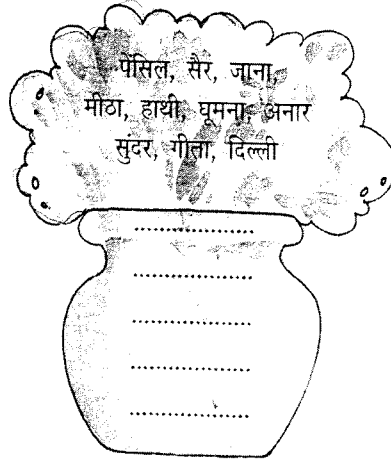 पेंसिल, सैर, जाना,
मीठा, हाथी, घूमना, अनार
सुदर, गीता, दिल्ली
........................
........................
........................
........................
........................